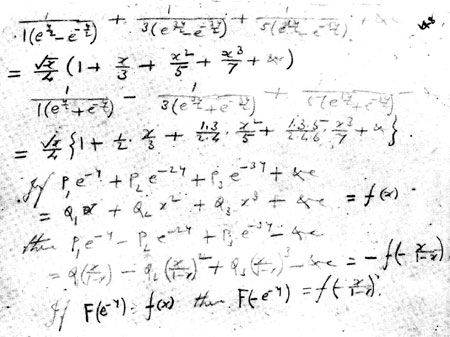 1/(1(e^{y/2} - e^{-y/2})) + 1/(3(e^{3y/2} - e^{-3y/2})) + 1/(5(e^{5y/2} - e^{-5y/2}))
= √x/4 (1 + x/3 + x²/5 + x³/7 + &c)
1/(1(e^{y/2} + e^{-y/2})) - 1/(3(e^{3y/2} + e^{-3y/2})) +
= √x/4 {1 + 1/2 · x/3 + 1.3/2.4 · x²/5 + 1.3.5/2.4.6 · x³/7 + &c}.
If P₁e^{-y} + P₂e^{-2y} + P₃e^{-3y} + &c
= Q₁x + Q₂x² + Q₃x³ + &c = f(x).
then P₁e^{-y} - P₂e^{-2y} + P₃e^{-3y} - &c
= Q₁(x/(1-x)) - Q₂(x/(1-x))² + Q₃(x/(1-x))³ - &c = -f(-x/(1-x))
If F(e^{-y}) = f(x) then F(-e^{-y}) = f(-x/(1-x)).